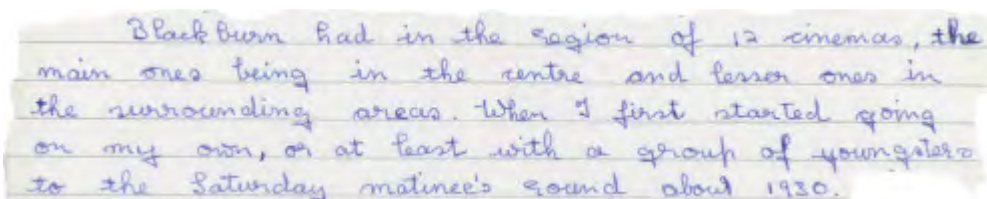 Blackburn had in the region of 12 cinemas, the
main ones being in the centre and lesser ones in
the surrounding areas. When I first started going
on my own, or at least with a group of youngsters
to the Saturday matinee's round about 1930.